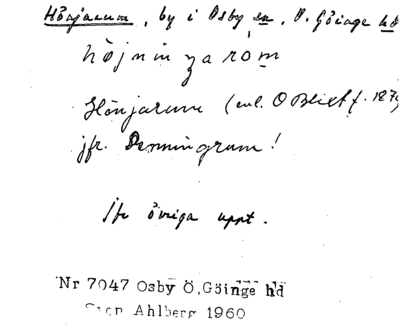 Hönjarum, by i Osby sn, Ö. Göinge hd
höjnin ga rom
Hönjarum (enl. O Blixt f. 187
jfr. Penningrum!
Jfr övriga uppt.
Nr 7047 Osby Ö, Göinge hd
Sven Ahlberg 1960